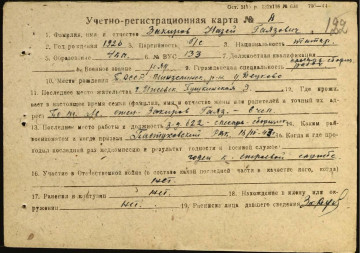 Учетно-регистрационная карта № А
1. Фамилия, имя и отчество Закиров Назей Гаязович 192
2. Год рождения 1926 3. Партийность б/п 4. Национальность татар.
5. Образование 4 кл. 6. № ВУС 133 7. Должностная квалификация
8. Военное звание 9. Гражданская специальность
10. Место рождения
11. Последнее место жительства г. Ижевск Пушкинская 12. Где прожи-
вает в настоящее время семья (фамилия, имя и отчество жены или родителей и точный их ад-
рес) отец Закиров Гаяз
13. Последнее место работы и должность з-д 622 слесарь-сборщик 14. Каким рай-
военкоматом и когда призван Пастуховский РВК 15. Когда и где про-
ходил последний раз медкомиссию и результат годности к военной службе
годен к строевой службе
16. Участие в Отечественной войне (в составе какой последней части в качестве кого, когда)
нет.
17. Ранения и контузии нет. 18. Нахождение в плену или ок-
ружении нет. 19. Росписка лица давшего сведения